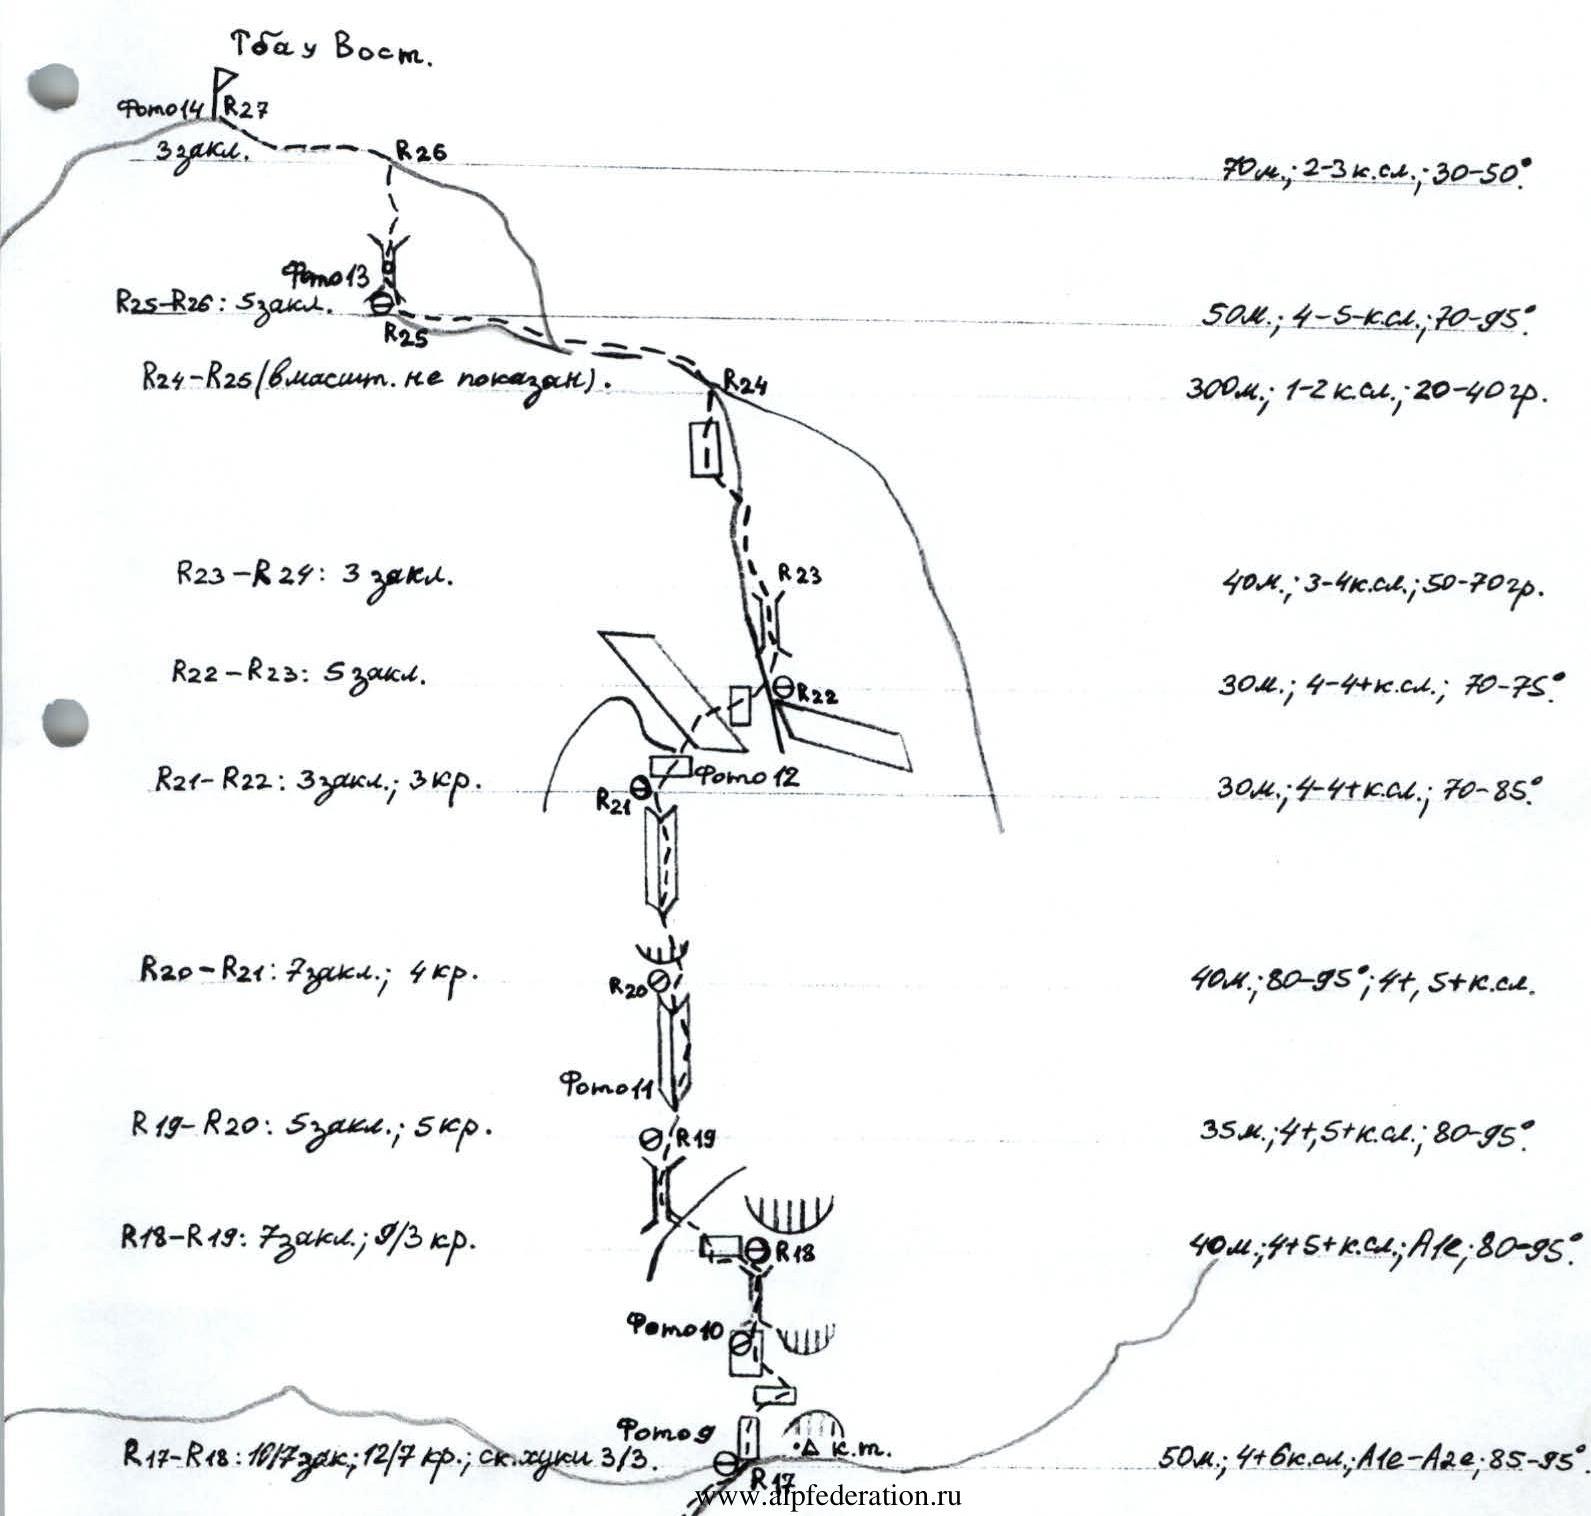 Тбау Вост.
Фото14 R27
3 закл.
R26
70м.; 2-3 к.сл.; 30-50°.
Фото13
R25-R26: 5 закл.
50м.; 4-5- к.сл.; 70-95°.
R25
R24-R25 (в масшт. не показан).
R24
300м.; 1-2 к.сл.; 20-40 гр.
R23-R24: 3 закл.
R23
40м.; 3-4 к.сл.; 50-70 гр.
R22-R23: 5 закл.
R22
30м.; 4-4+ к.сл.; 70-75°.
R21-R22: 3 закл.; 3 кр.
Фото12
R21
30м.; 4-4+ к.сл.; 70-85°.
R20-R21: 7 закл.; 4 кр.
R20
40м.; 80-95°; 4+, 5+ к.сл.
Фото11
R19-R20: 5 закл.; 5 кр.
R19
35м.; 4+, 5+ к.сл.; 80-95°.
R18-R19: 7 закл.; 9/3 кр.
R18
40м.; 4+5+ к.сл.; А1е; 80-95°.
Фото10
Фото9
к.т.
R17-R18: 10/7 зак; 12/7 кр.; ск.хуки 3/3.
R17
50м.; 4+6 к.сл.; А1е-А2е; 85-95°.
www.alpfederation.ru